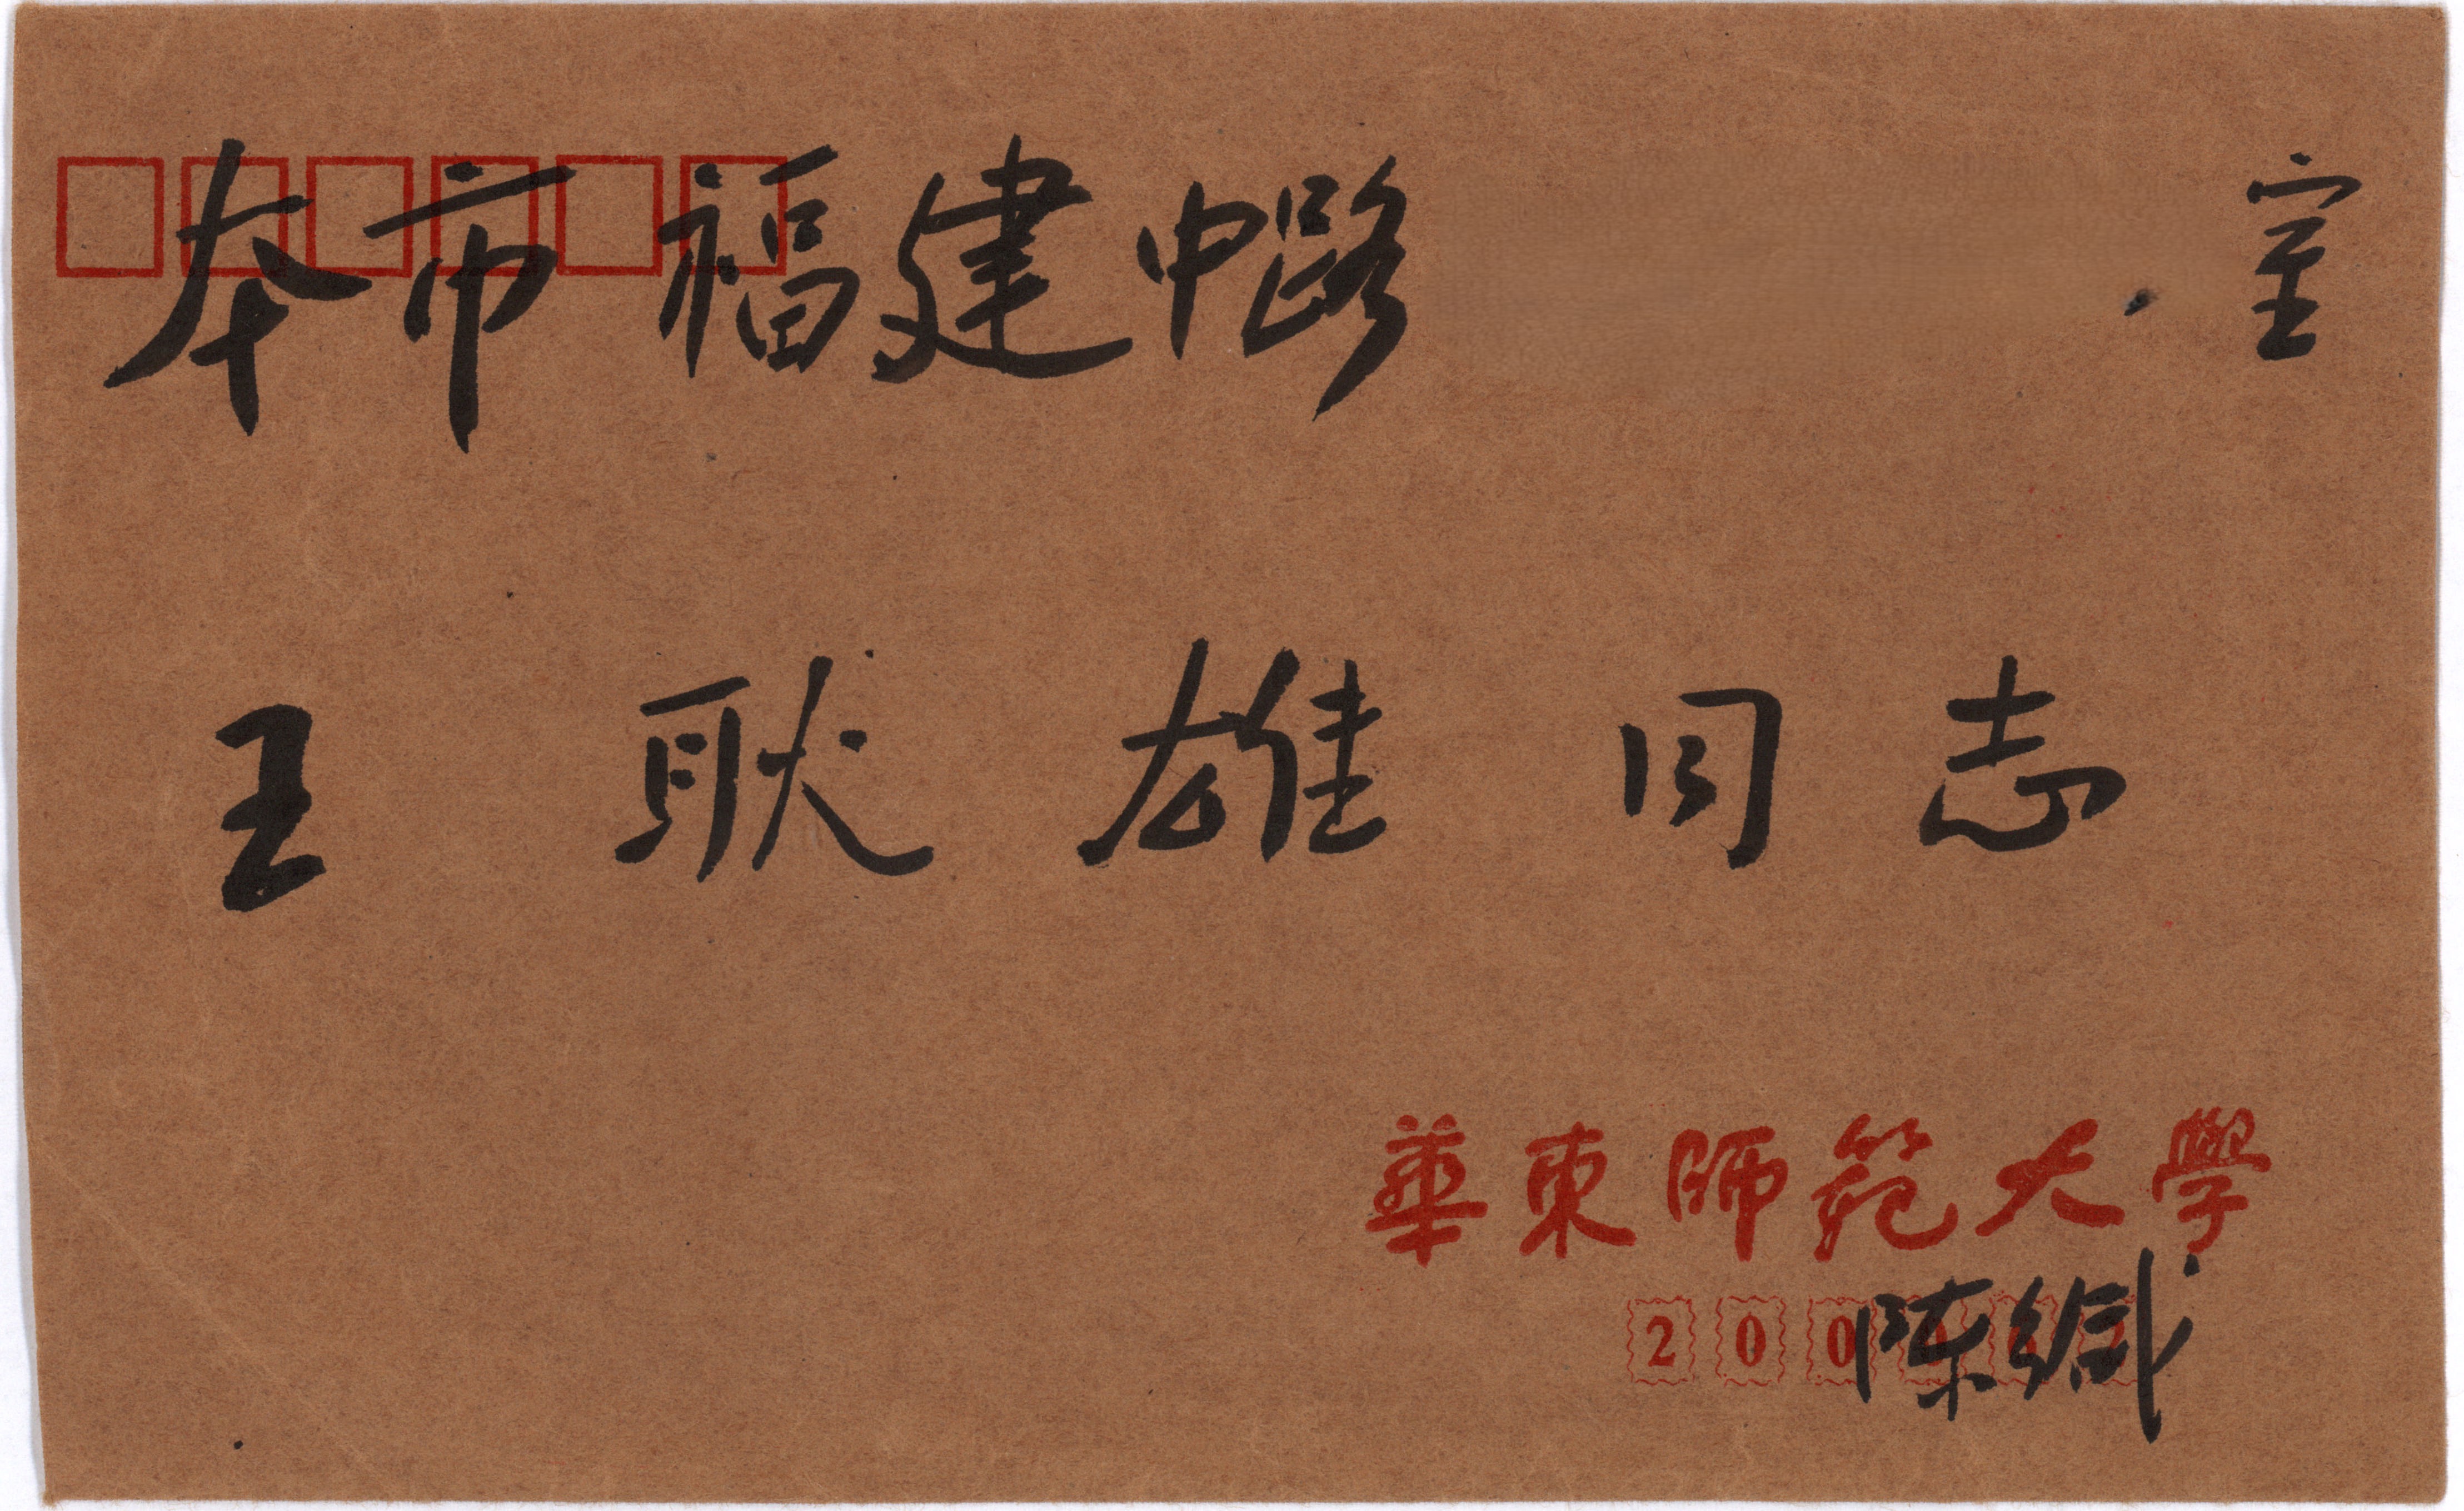 本市福建中路 室
王耿雄同志
華東師范大學
200062
陈缄